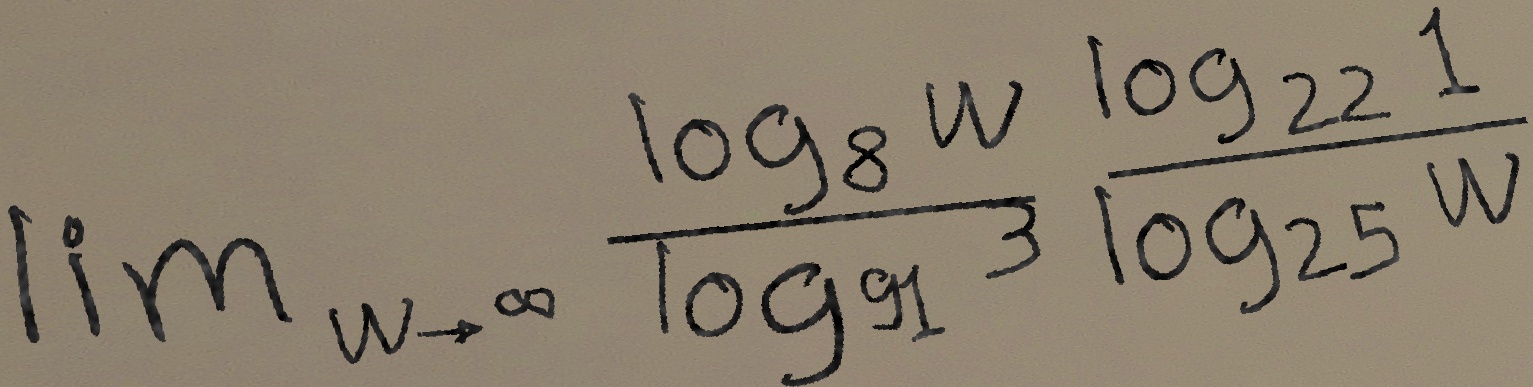 \lim_{w \to \infty} \frac{\log_8 w}{\log_{91} 3} \frac{\log_{22} 1}{\log_{25} w}